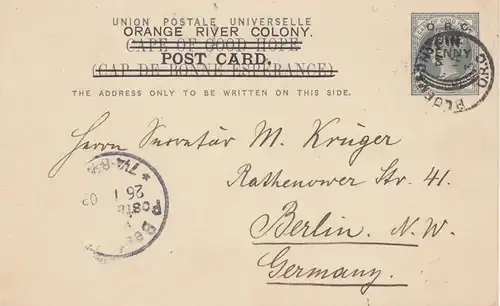 UNION POSTALE UNIVERSELLE
ORANGE RIVER COLONY.
CAPE OF GOOD HOPE
POST CARD.
(CAP DE BONNE ESPERANCE)
THE ADDRESS ONLY TO BE WRITTEN ON THIS SIDE.
PENNY
O.R.C.
Herrn Secretär M. Krüger
Rathenower Str. 41.
Berlin. N.W.
Germany.
26 1